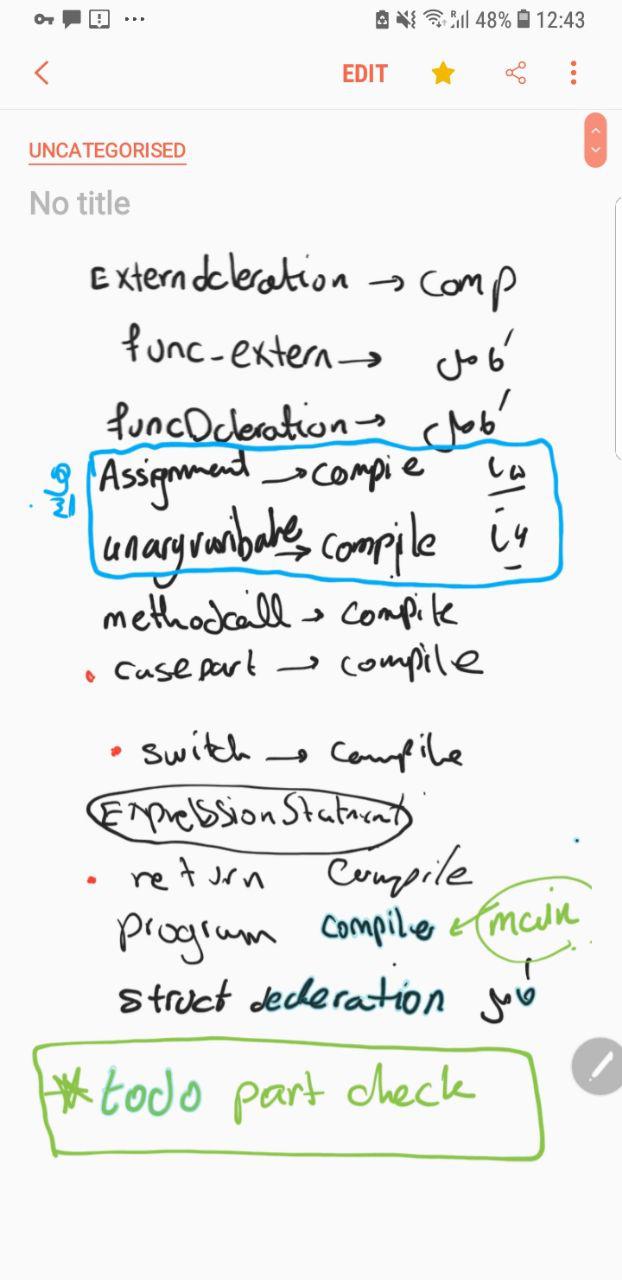 48% 12:43
EDIT
UNCATEGORISED
No title
Externdcleration → comp
func-extern →
funcDcleration →
Assignment → compie
unaryvaribale → compile
methodcall → compile
casepart → compile
switch → compile
ExpressionStatment
return compile
program compiler ← main
struct decleration
* todo part check